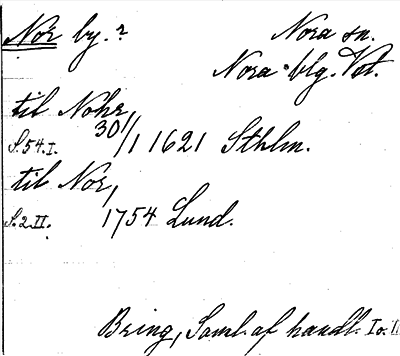 Nor by.? Nora sn.
Nora blg. Vst.
til Nohr,
S.54.I. 30/1 1621 Sthlm.
til Nor,
S.2.II. 1754 Lund.
Bring, Saml. af handl. I o. II